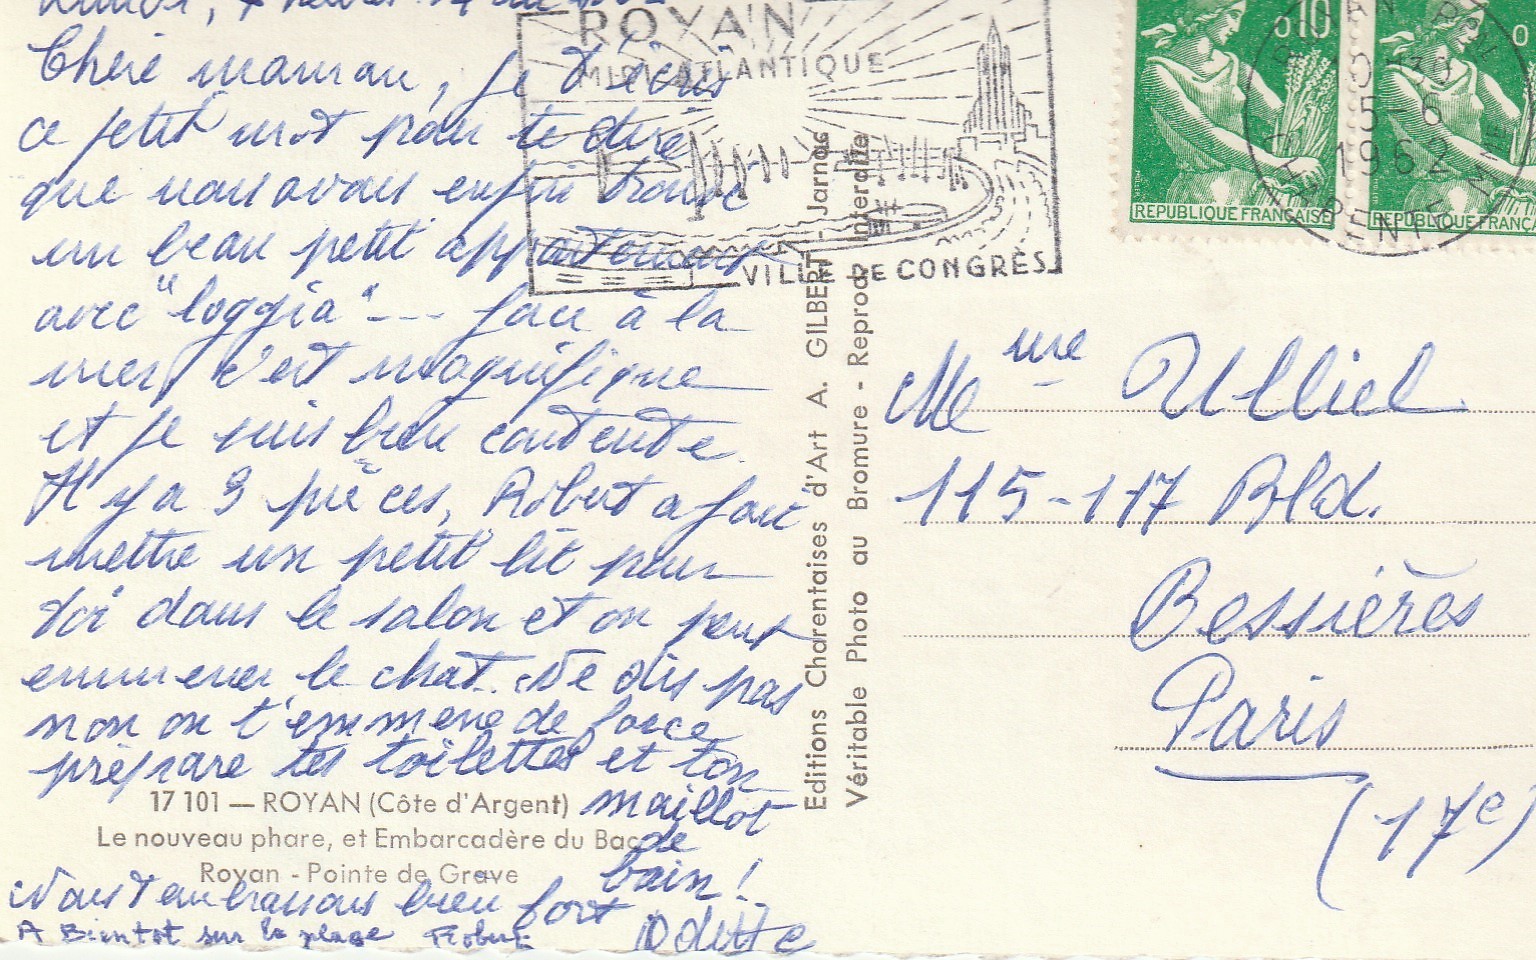 Lundi, 7 heures
Chère maman, je t'écris
ce petit mot pour te dire
que nous avons enfin trouvé
un beau petit appartement
avec "loggia" --- face à la
mer, c'est magnifique
et je suis bien contente.
Il y a 3 pièces, Robert a fait
mettre un petit lit pour
toi dans le salon et on peut
emmener le chat. Ne dis pas
non on t'emmene de force
prépare tes toilettes et ton
maillot
de
bain!
Nous t'embrassons bien fort
Odette
A Bientot sur la plage Robert
17 101 — ROYAN (Côte d'Argent)
Le nouveau phare, et Embarcadère du Bac
Royan - Pointe de Grave
Editions Charentaises d'Art A. GILBERT - Jarnac
Véritable Photo au Bromure - Reprod. Interdite
ROYAN
MIDI ATLANTIQUE
VILLE DE CONGRÈS
0,10
REPUBLIQUE FRANÇAISE
0
REPUBLIQUE FRANÇA
ROYAN
10-30
5-6
1962
CHARENTE MME
Mme Ulliel
115-117 Bld.
Bessières
Paris
(17e)